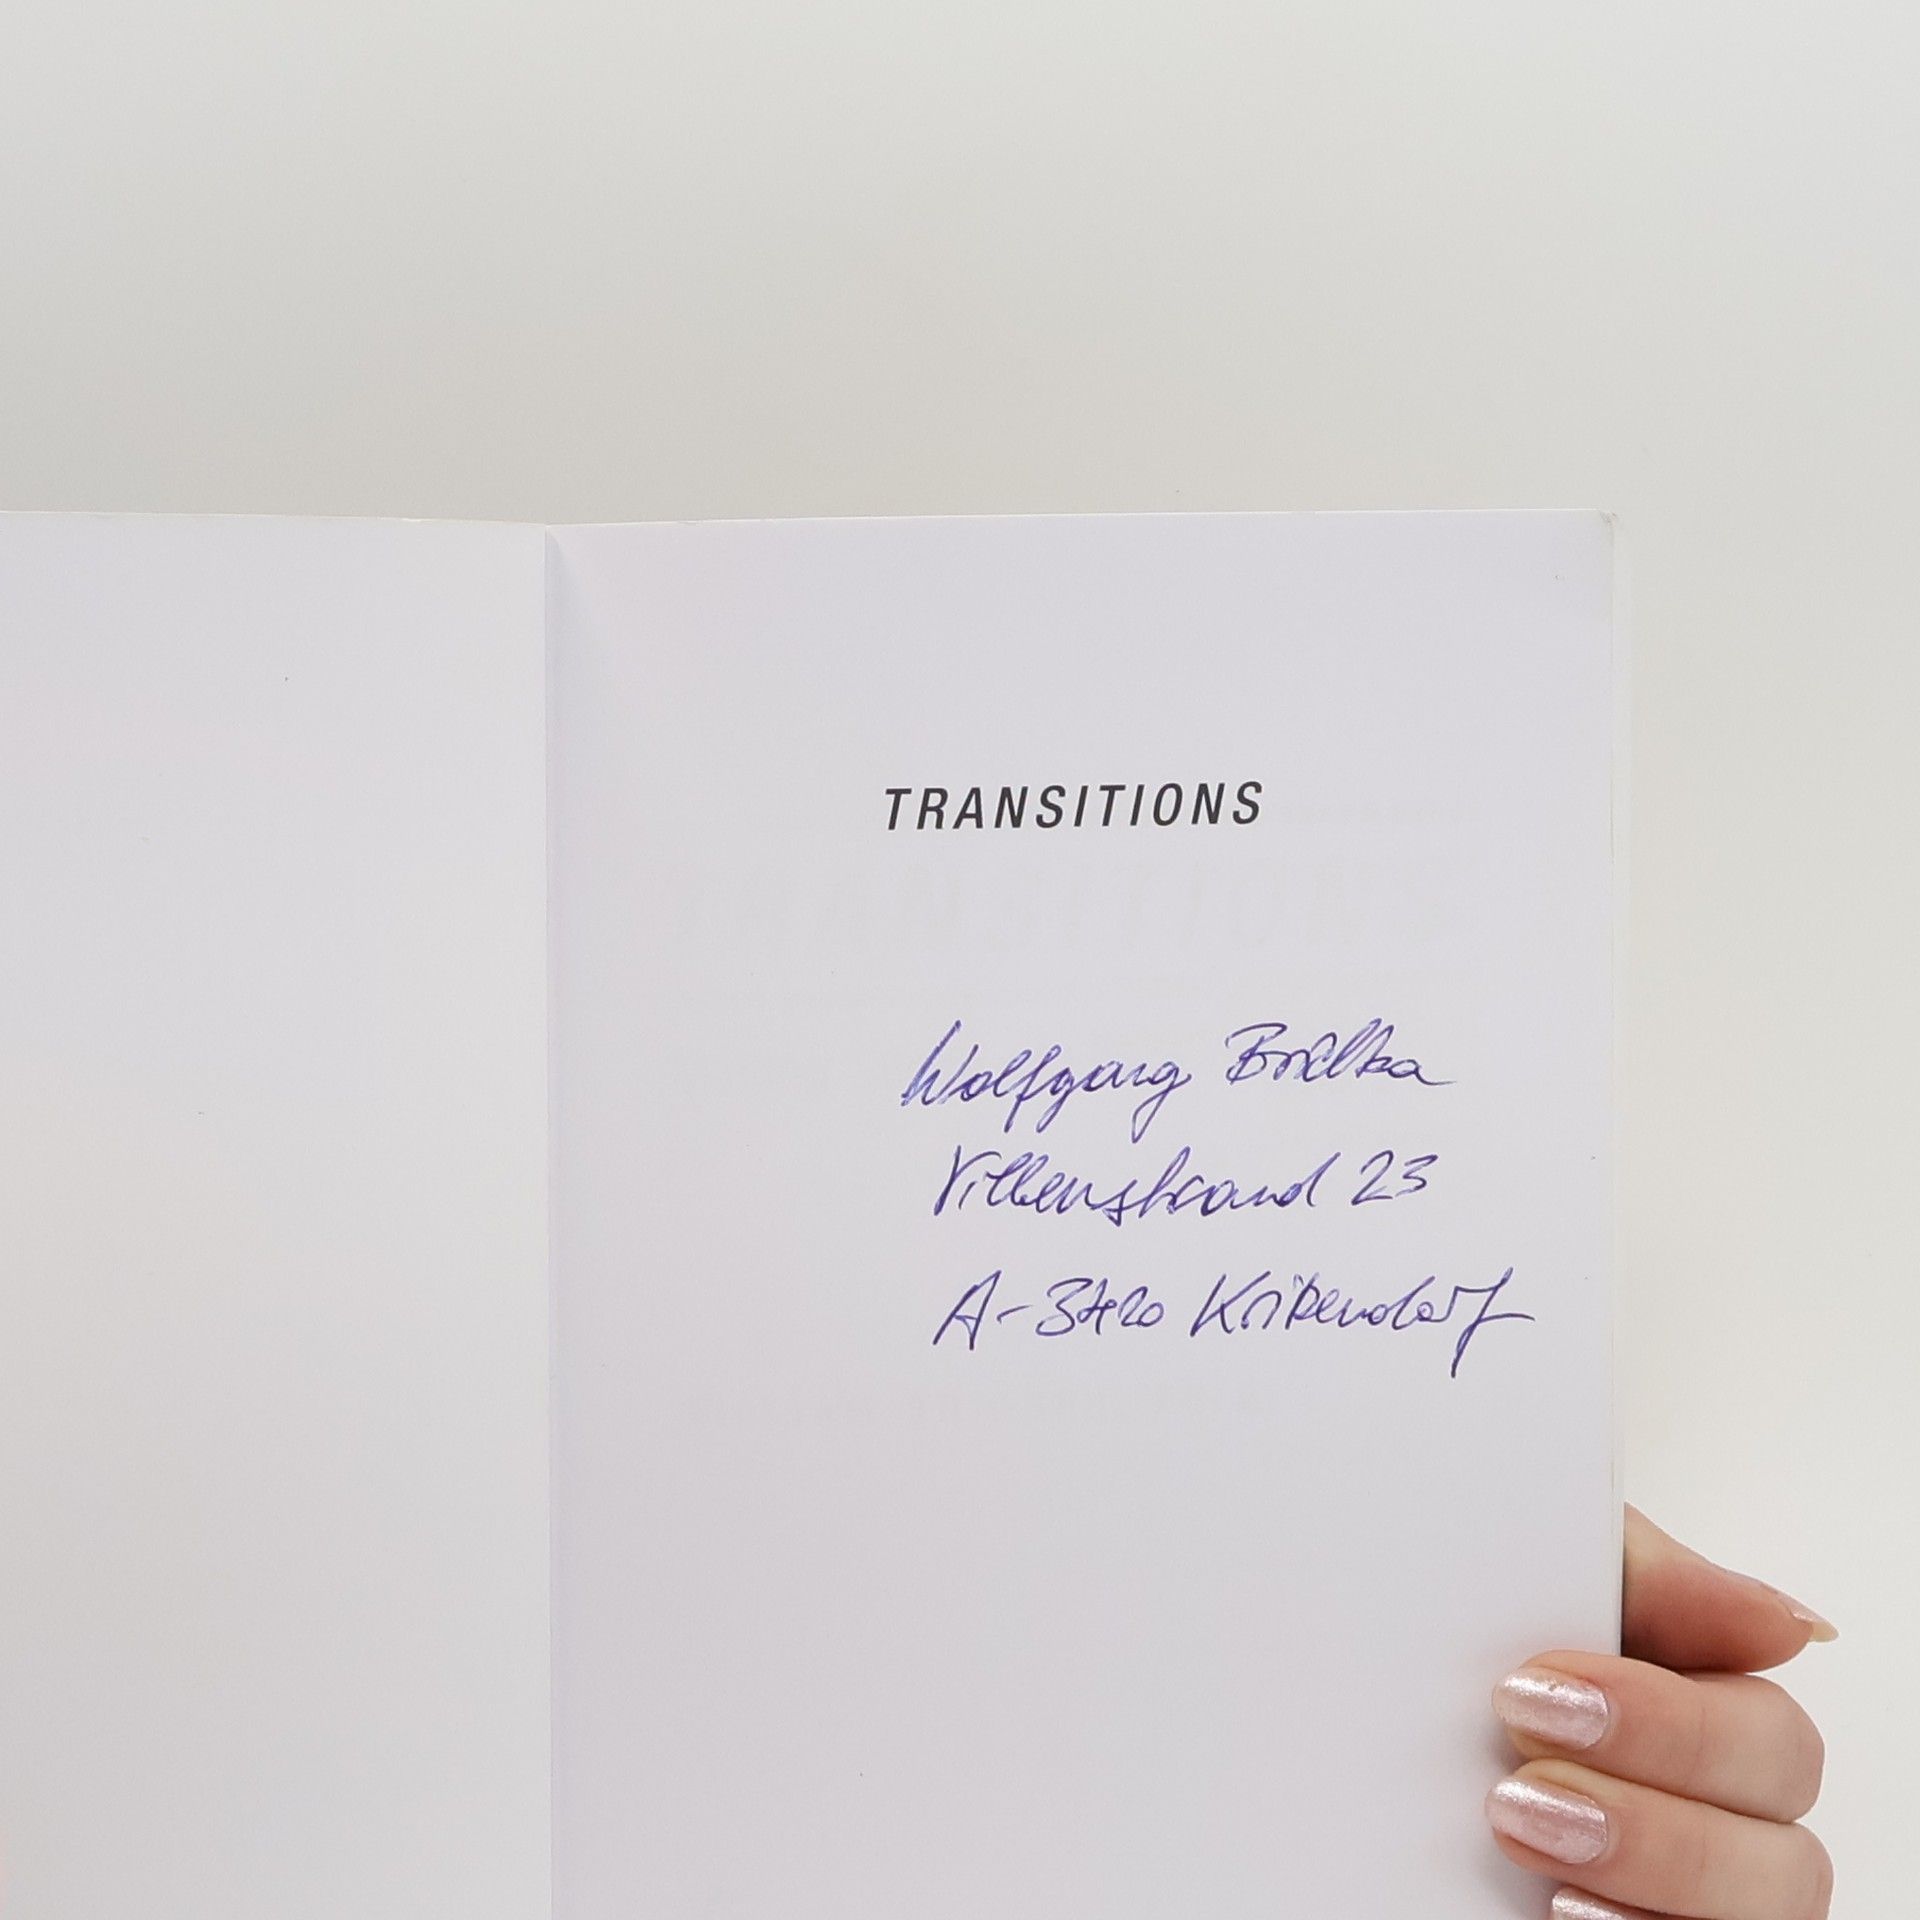 TRANSITIONS
Wolfgang
Villenstrand 23
A-3420 Kritzendorf